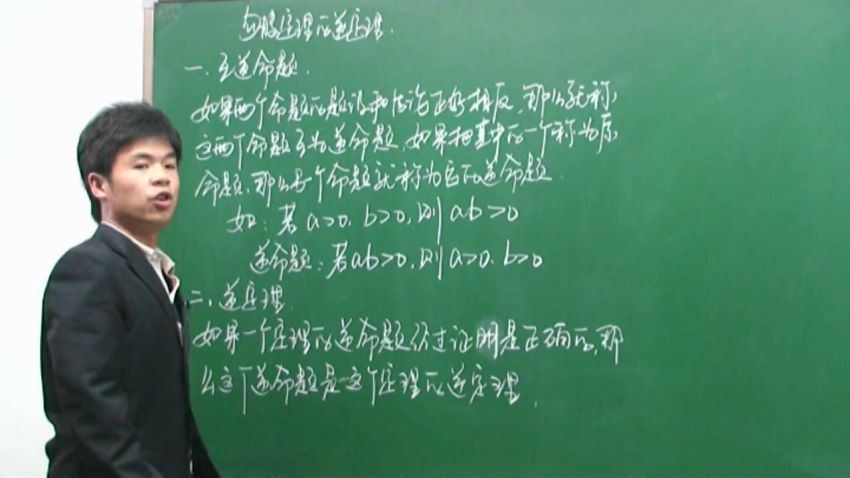 勾股定理的逆定理.
一、互逆命题.
如果两个命题的题设和结论正好相反,那么就称
这两个命题互为逆命题,如果把其中的一个称为原
命题,那么另一个命题就称为它的逆命题.
如:若a>0,b>0,则ab>0
逆命题:若ab>0,则a>0,b>0
二、逆定理.
如果一个定理的逆命题经过证明是正确的,那
么这个逆命题是这个定理的逆定理.